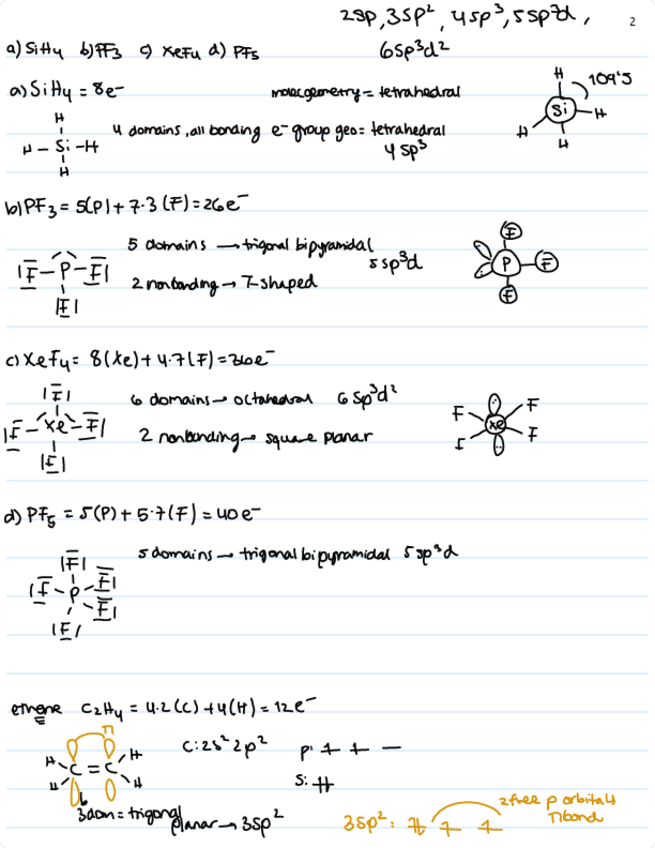 2sp, 3sp², 4sp³, 5sp³d,
2
a) SiH4 b) PF3 c) XeF4 d) PF5
6sp³d²
a) SiH4 = 8e⁻
molec geometry = tetrahedral
H
109°5
H
H - Si - H
H
4 domains, all bonding e⁻ group geo = tetrahedral
4sp³
Si
H
H
H
b) PF3 = 5(P) + 7·3(F) = 26e⁻
F - P - F
F
5 domains → trigonal bipyramidal
5sp³d
2 nonbonding → T-shaped
F
P
F
F
c) XeF4 = 8(Xe) + 4·7(F) = 36e⁻
F
F - Xe - F
F
6 domains → octahedral 6sp³d²
2 nonbonding → square planar
F
F
Xe
F
F
d) PF5 = 5(P) + 5·7(F) = 40e⁻
5 domains → trigonal bipyramidal 5sp³d
F
F - P - F
F
F
ethene C2H4 = 4·2(C) + 4(H) = 12e⁻
π
H
H
C = C
H
H
C: 2s² 2p²
p:
s:
3dom = trigonal
planar → 3sp²
3sp²:
2 free p orbitals
π bond